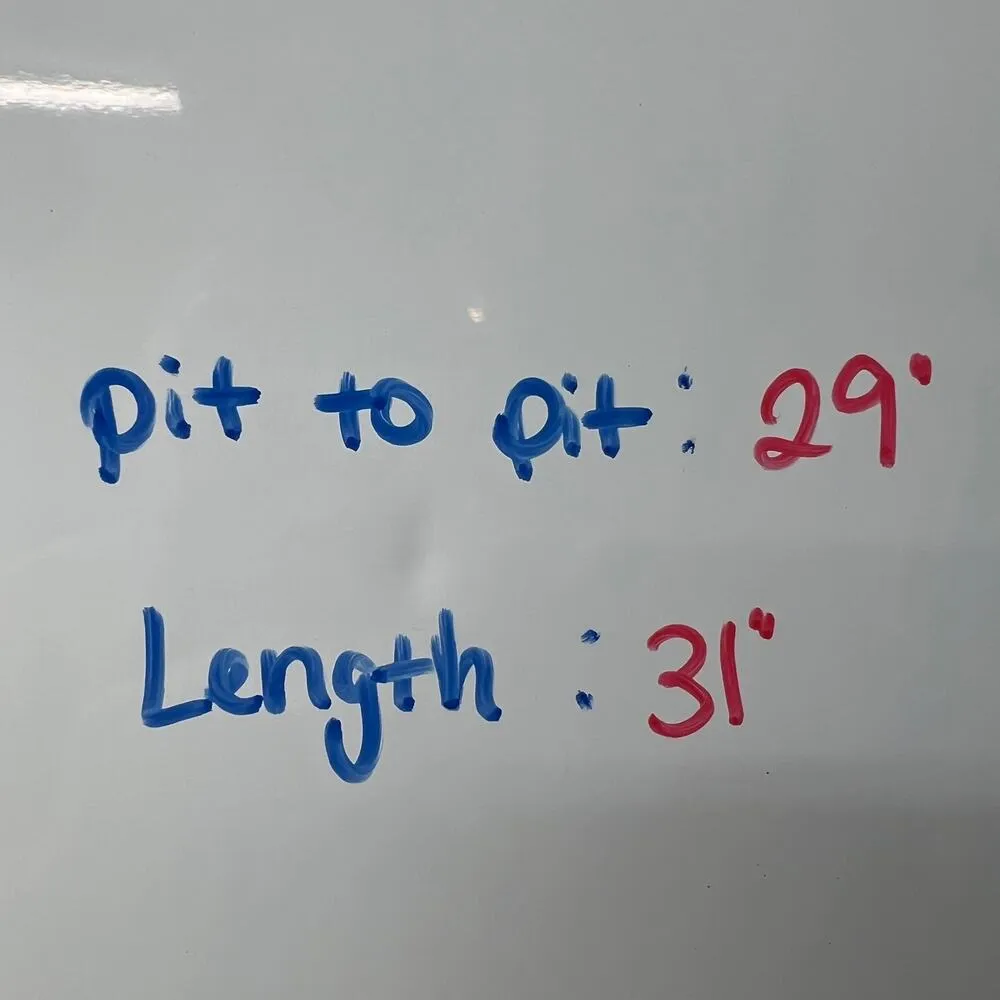 pit to pit: 29"
Length : 31"